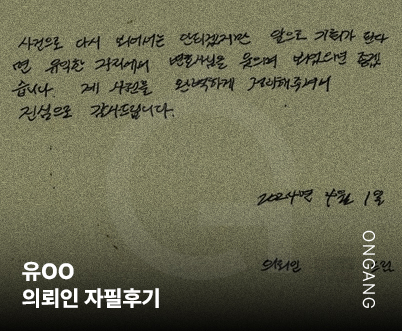 사건으로 다시 뵈어서는 안되겠지만 앞으로 기회가 된다
면 유익한 자리에서 변호사님을 웃으며 뵈었으면 좋겠
습니다. 제 사건을 완벽하게 해결해주셔서
진심으로 감사드립니다.
2024년 4월 1일
의뢰인
유OO
의뢰인 자필후기
ONGANG